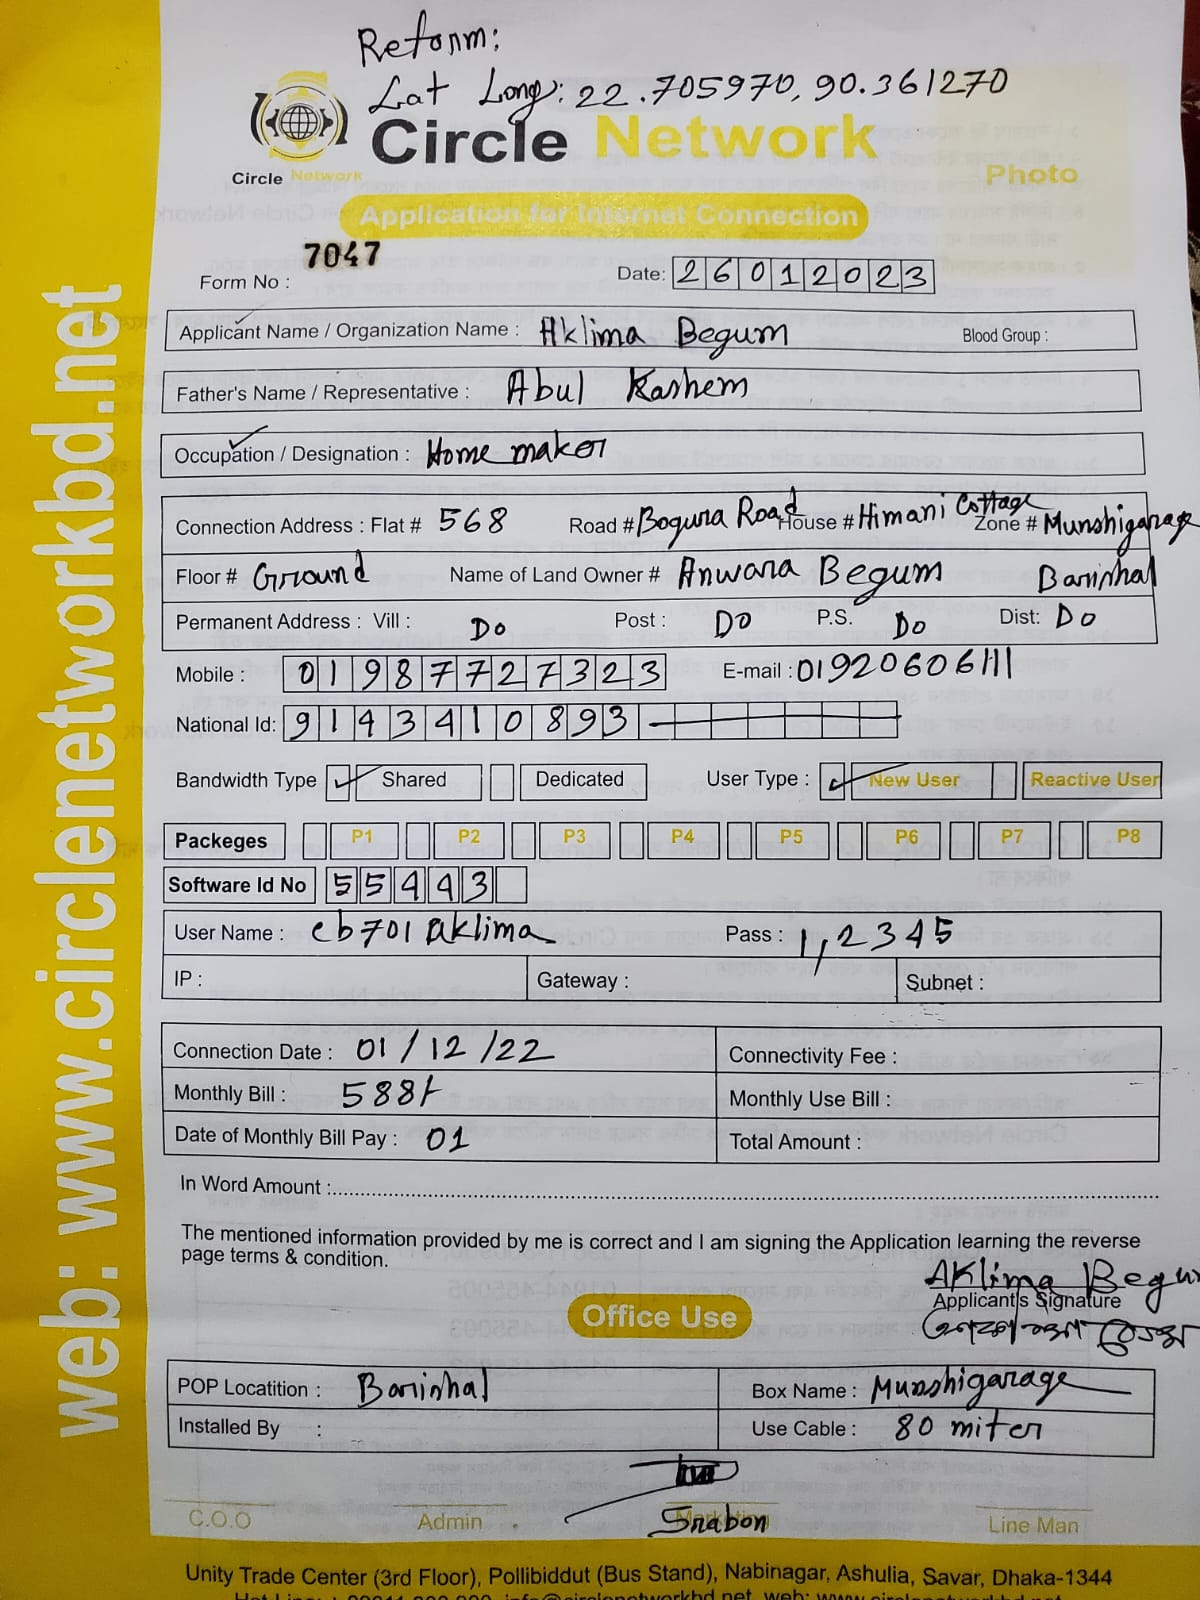 Reform:
Lat Long: 22.705970, 90.361270
Circle Network
Circle Network
Photo
Application for Internet Connection
Form No : 7047
Date: 26012023
Applicant Name / Organization Name : Aklima Begum Blood Group :
Father's Name / Representative : Abul Kashem
Occupation / Designation : Home maker
Connection Address : Flat # 568 Road # Bogura Road House # Himani Cottage Zone # Munshigarage
Floor # Ground Name of Land Owner # Anwara Begum Barishal
Permanent Address : Vill : Do Post : Do P.S. Do Dist: Do
Mobile : 01987727323 E-mail : 01920606111
National Id: 9143410893
Bandwidth Type ✓ Shared Dedicated User Type : ✓ New User Reactive User
Packeges P1 P2 P3 P4 P5 P6 P7 P8
Software Id No 55443
User Name : cb701aklima Pass : 1,2345
IP : Gateway : Subnet :
Connection Date : 01/12/22 Connectivity Fee :
Monthly Bill : 588/- Monthly Use Bill :
Date of Monthly Bill Pay : 01 Total Amount :
In Word Amount :
The mentioned information provided by me is correct and I am signing the Application learning the reverse
page terms & condition.
Aklima Begum
Applicant's Signature
Office Use
POP Locatition : Barishal Box Name : Munshigarage
Installed By : Use Cable : 80 miter
Srabon
C.O.O Admin Marketing Line Man
Unity Trade Center (3rd Floor), Pollibiddut (Bus Stand), Nabinagar, Ashulia, Savar, Dhaka-1344
web: www.circlenetworkbd.net